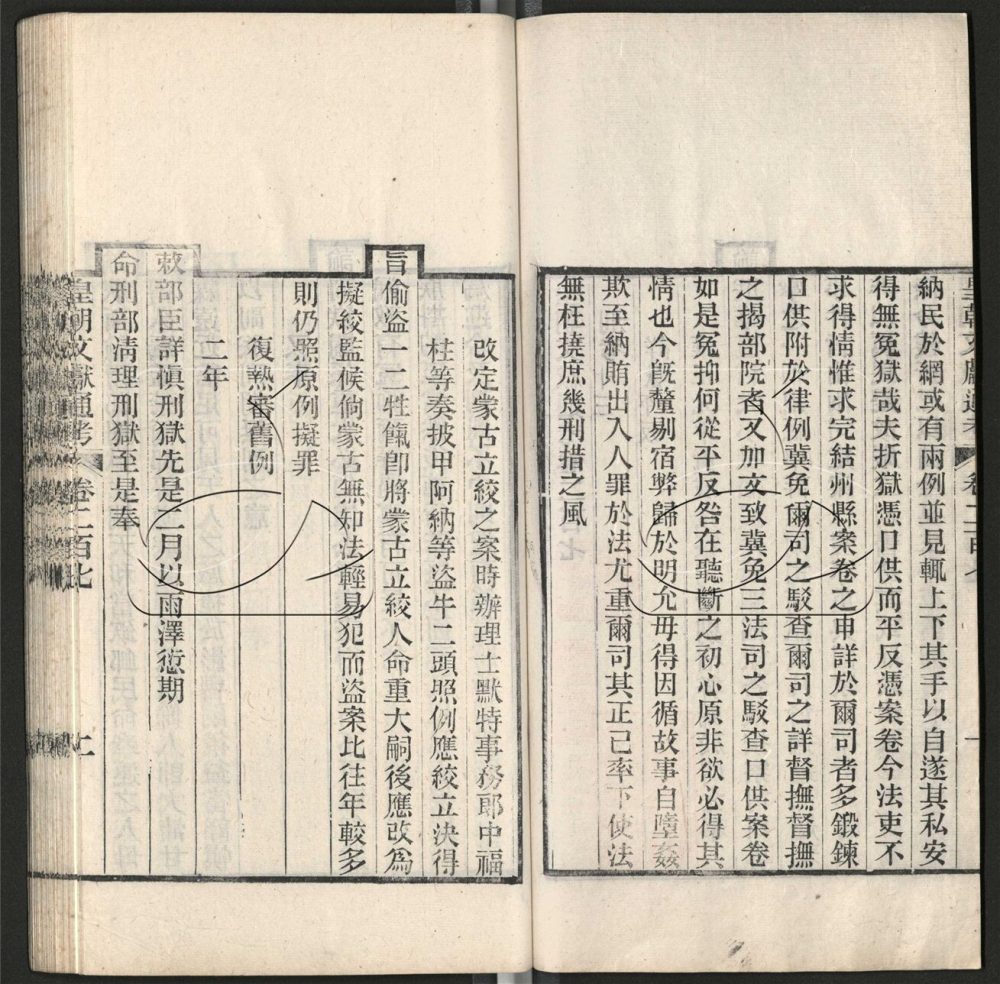 納民於網或有兩例並見輒上下其手以自遂其私安
得無冤獄哉夫折獄憑口供而平反憑案卷今法吏不
求得情惟求完結州縣案卷之申詳於爾司者多鍛鍊
口供附於律例冀免爾司之駁查爾司之詳督撫督撫
之揭部院者又加文致冀免三法司之駁查口供案卷
如是冤抑何從平反咎在聽斷之初心原非欲必得其
情也今旣釐剔宿弊歸於明允毋得因循故事自墮姦
欺至納賄出入人罪於法尤重爾司其正己率下使法
無枉撓庶幾刑措之風
改定蒙古立絞之案時辦理士默特事務郎中福
柱等奏披甲阿納等盜牛二頭照例應絞立決得
旨偷盜一二牲餼卽將蒙古立絞人命重大嗣後應改爲
擬絞監候倘蒙古無知法輕易犯而盜案比往年較多
則仍照原例擬罪
復熱審舊例
二年
敕部臣詳愼刑獄先是三月以雨澤愆期
命刑部清理刑獄至是奉
皇朝文獻通考 卷二百七